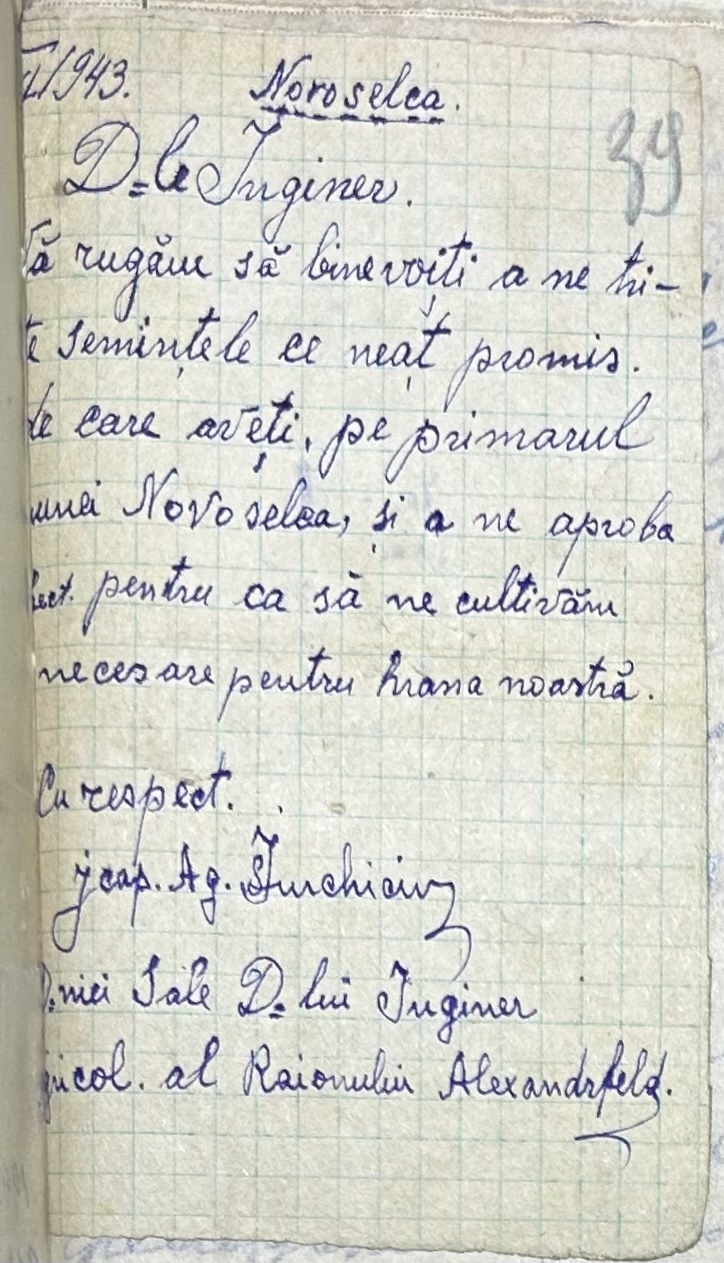 /1943. Novoselca.
39
D-le Inginer.
Vă rugăm să binevoiți a ne tri-
te semințele ce neaț promis.
de care aveți, pe primarul
unei Novoselca, și a ne aproba
hect. pentru ca să ne cultivăm
necesare pentru hrana noastră.
Cu respect.
Ag.
D.niei Sale D-lui Inginer
gricol. al Raionului Alexandrfeld.